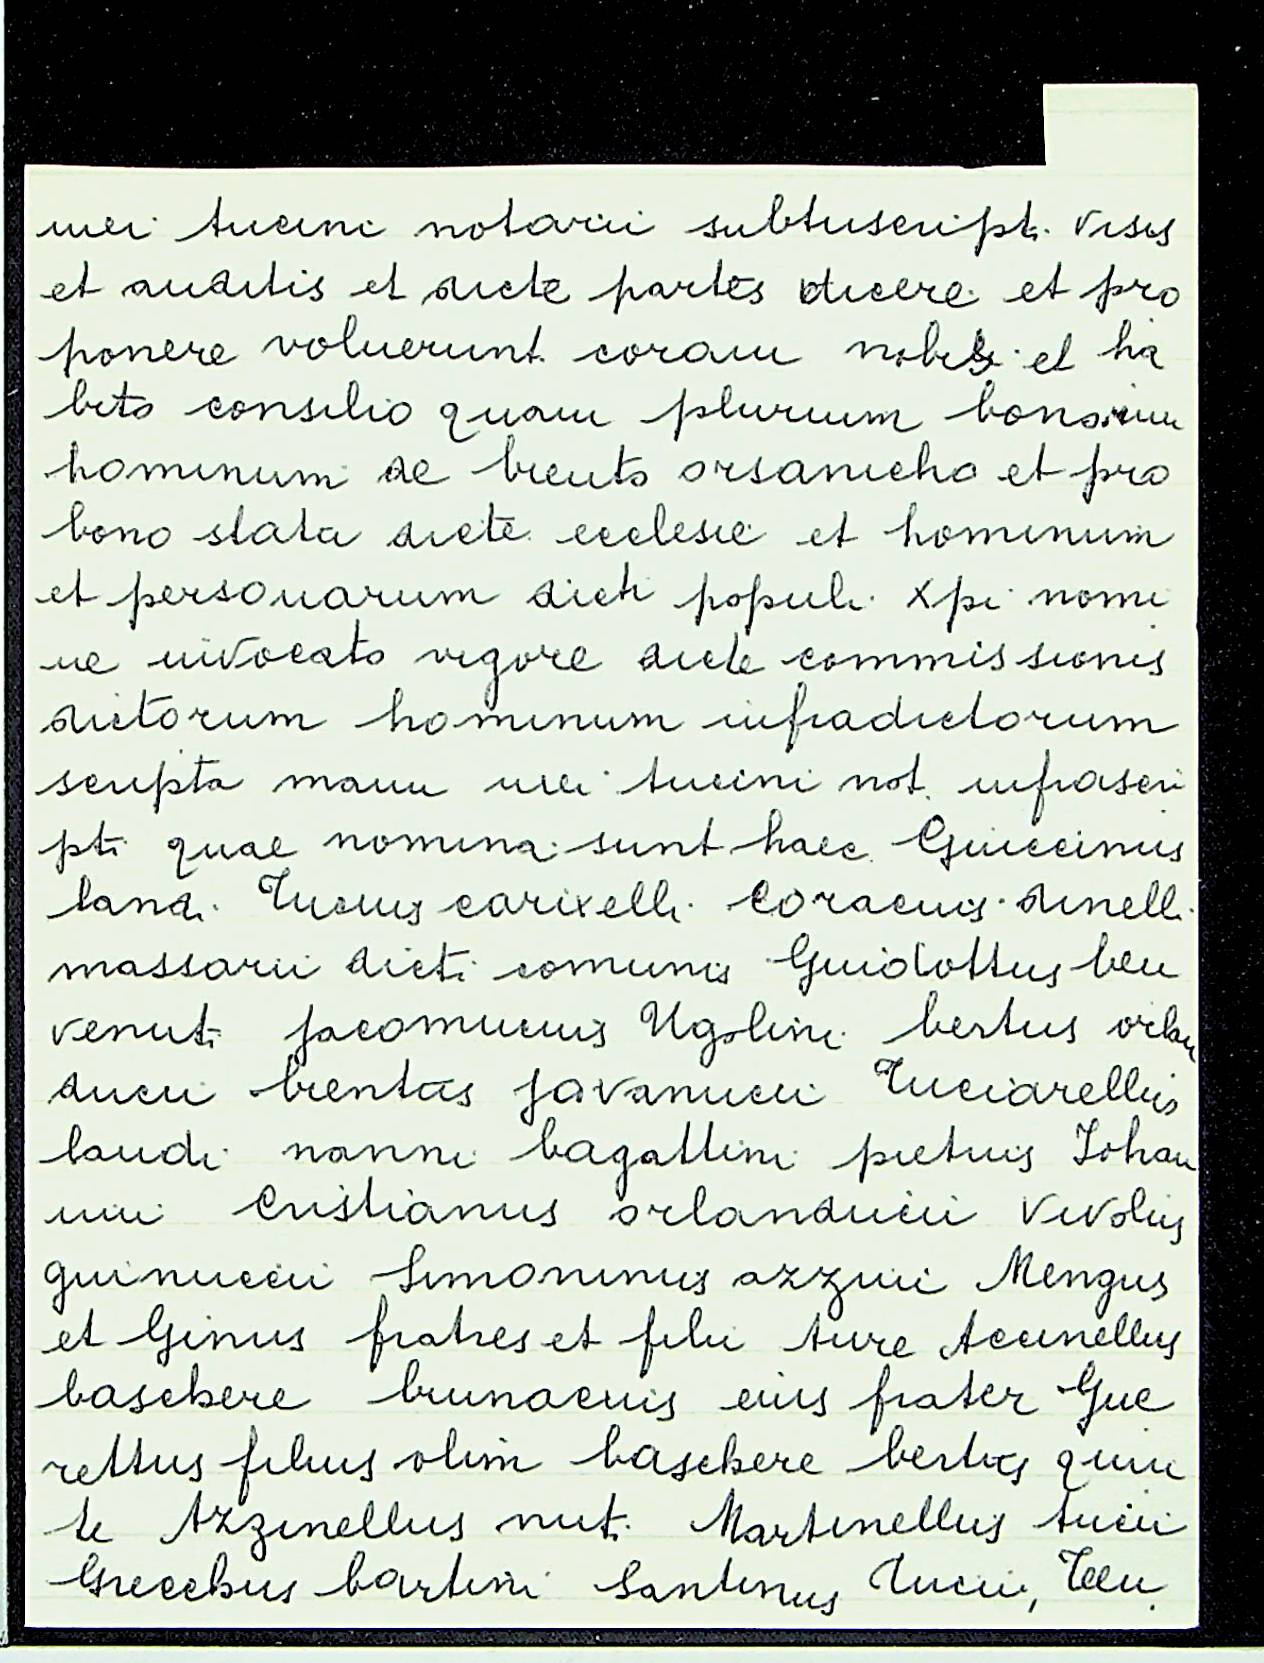 mei tucini notarii subtuscripti. visis
et auditis et dicte partes dicere et pro
ponere voluerunt coram nobis et ha
bito consilio quam plurium bonorum
hominum de brento orsanicho et pro
bono statu dicte ecclesie et hominum
et personarum dicti populi. xpi nomi
ne invocato vigore dicte commissionis
dictorum hominum infradictorum
scripta manu mei tucini not. infrascri
pti quae nomina sunt haec Guiccinus
landi. Tucius carixelli. Coracius dinelli.
massarii dicti comunis Guidottus ben
venuti jacomucius Ugolini bertus orlan
ducii brentus Javanucii Tucciarellus
landi nanni bagattini pietrus Johan
nini Cristianus orlanducii Vivolus
guinuccii Simoninus azzini Mengus
et Ginus fratres et filii ture Accinellus
baschere brunacius eius frater Gue
rettus filius olim baschere bertus quin
te Azzinellus nuti. Martinellus tucii
Grecchus bartini Santinus Tucii,